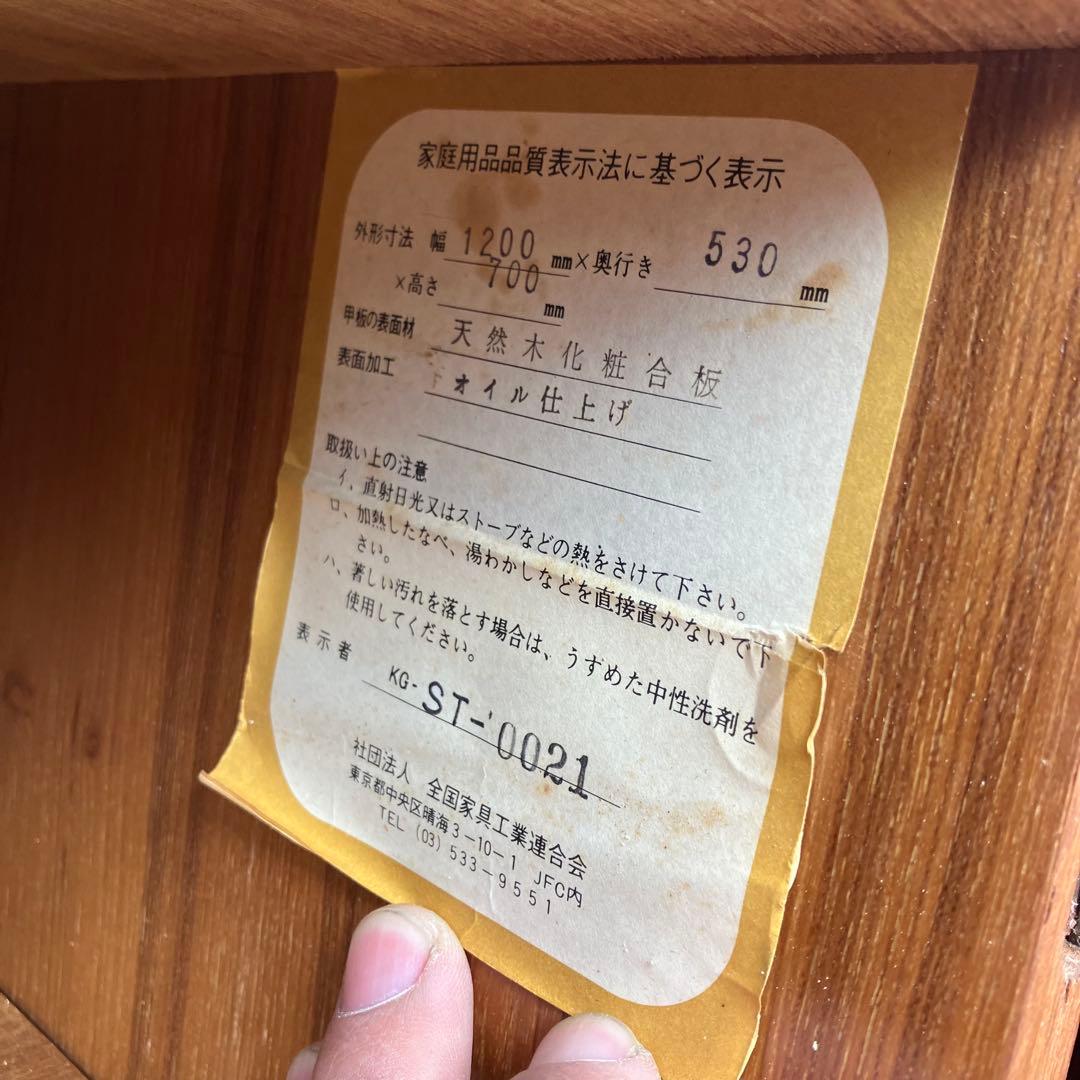 家庭用品品質表示法に基づく表示
外形寸法 幅 1200 mm×奥行き 530 mm
×高さ 700 mm
甲板の表面材 天然木化粧合板
表面加工 オイル仕上げ
取扱い上の注意
イ、直射日光又はストーブなどの熱をさけて下さい。
ロ、加熱したなべ、湯わかしなどを直接置かないで下
さい。
ハ、著しい汚れを落とす場合は、うすめた中性洗剤を
使用してください。
表示者
KG-ST-0021
社団法人 全国家具工業連合会
東京都中央区晴海3-10-1 JFC内
TEL (03) 533-9551